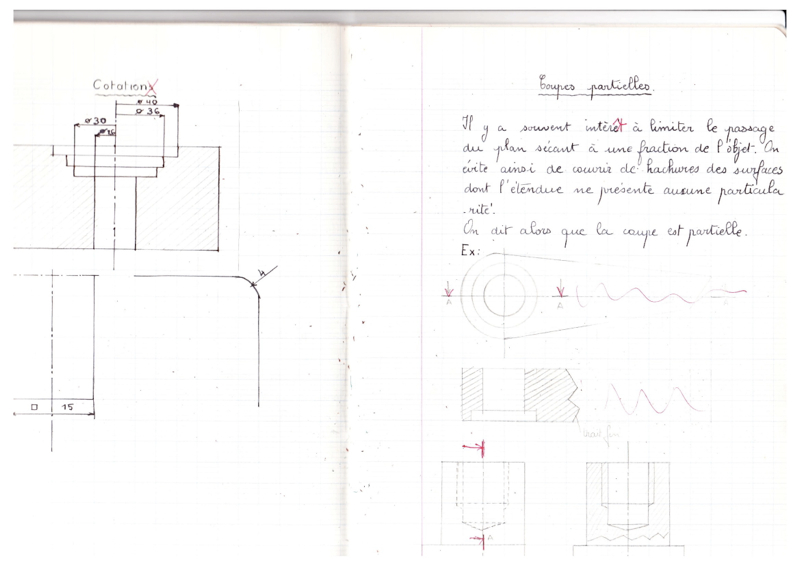 Cotation
ø 40
ø 36
ø 30
ø 16
4
□ 15
Coupes partielles.
Il y a souvent intérêt à limiter le passage
du plan sécant à une fraction de l'objet. On
évite ainsi de couvrir de hachures des surfaces
dont l'étendue ne présente aucune particula
-rité.
On dit alors que la coupe est partielle.
Ex:
A
A
A
A